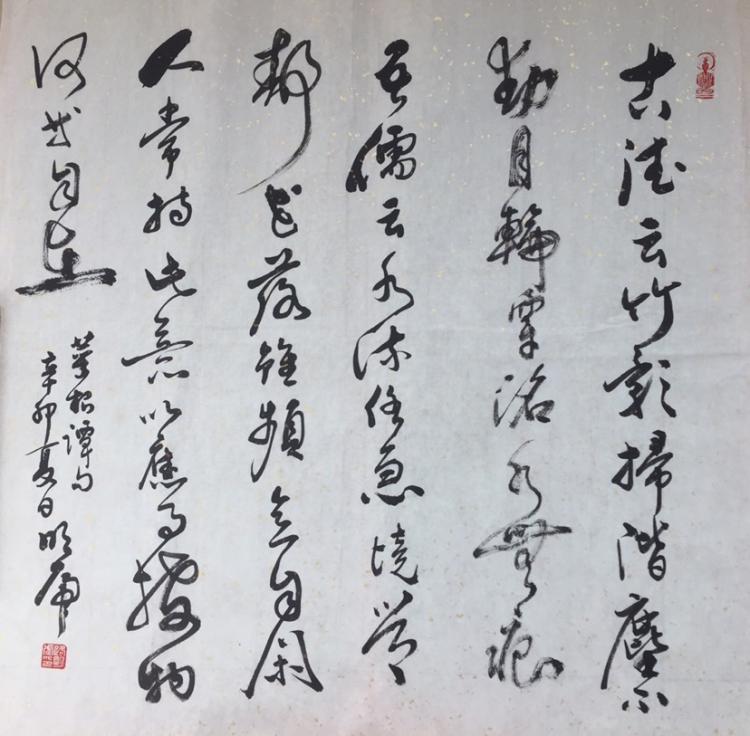 古德云竹影掃階塵不
動月輪穿沼水無痕
吾儒云水流任急境常
靜花落雖頻意自閑
人常持此意以應事接物
何自在
菜根譚句
辛卯夏日明